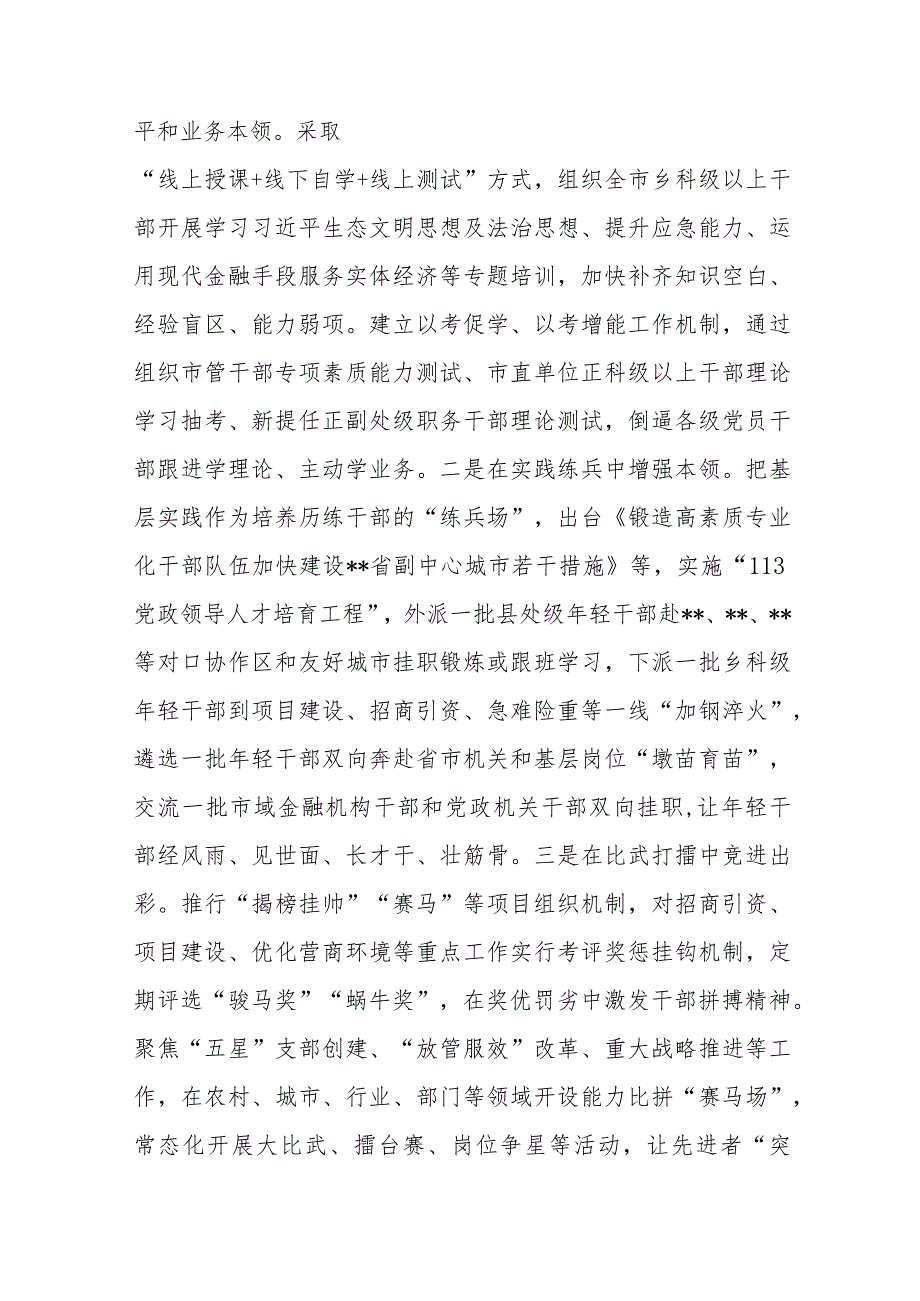 平和业务本领。采取
“线上授课+线下自学+线上测试”方式，组织全市乡科级以上干
部开展学习习近平生态文明思想及法治思想、提升应急能力、运
用现代金融手段服务实体经济等专题培训，加快补齐知识空白、
经验盲区、能力弱项。建立以考促学、以考增能工作机制，通过
组织市管干部专项素质能力测试、市直单位正科级以上干部理论
学习抽考、新提任正副处级职务干部理论测试，倒逼各级党员干
部跟进学理论、主动学业务。二是在实践练兵中增强本领。把基
层实践作为培养历练干部的“练兵场”，出台《锻造高素质专业
化干部队伍加快建设**省副中心城市若干措施》等，实施“113
党政领导人才培育工程”，外派一批县处级年轻干部赴**、**、**
等对口协作区和友好城市挂职锻炼或跟班学习，下派一批乡科级
年轻干部到项目建设、招商引资、急难险重等一线“加钢淬火”，
遴选一批年轻干部双向奔赴省市机关和基层岗位“墩苗育苗”，
交流一批市域金融机构干部和党政机关干部双向挂职,让年轻干
部经风雨、见世面、长才干、壮筋骨。三是在比武打擂中竞进出
彩。推行“揭榜挂帅”“赛马”等项目组织机制，对招商引资、
项目建设、优化营商环境等重点工作实行考评奖惩挂钩机制，定
期评选“骏马奖”“蜗牛奖”，在奖优罚劣中激发干部拼搏精神。
聚焦“五星”支部创建、“放管服效”改革、重大战略推进等工
作，在农村、城市、行业、部门等领域开设能力比拼“赛马场”，
常态化开展大比武、擂台赛、岗位争星等活动，让先进者“突